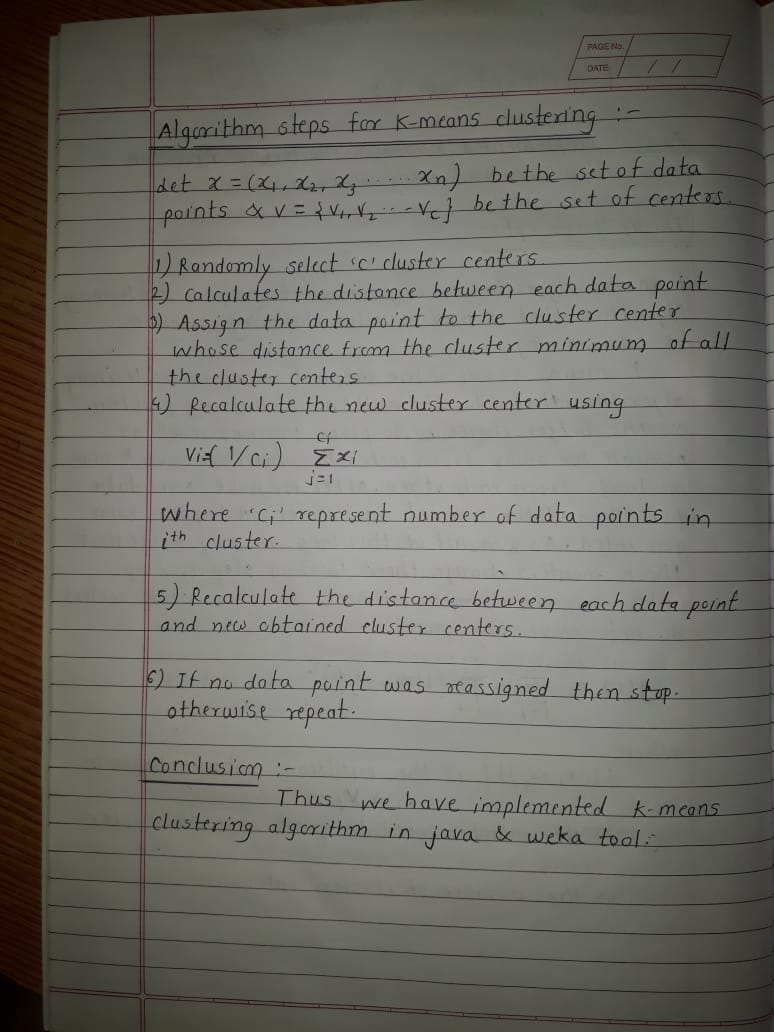 PAGE No.
DATE / /
Algorithm steps for K-means clustering :-
Let x = (x1, x2, x3 ...... xn) be the set of data
points & v = {v1, v2 ... vc} be the set of centers.
1) Randomly select 'c' cluster centers.
2) calculates the distance between each data point
3) Assign the data point to the cluster center
whose distance from the cluster minimum of all
the cluster centers
4) Recalculate the new cluster center using
Ci
Vi=( 1/ci) Σ xi
j=1
where 'Ci' represent number of data points in
ith cluster.
5) Recalculate the distance between each data point
and new obtained cluster centers.
6) If no data point was reassigned then stop.
otherwise repeat.
Conclusion :-
Thus we have implemented k-means
clustering algorithm in java & weka tool.